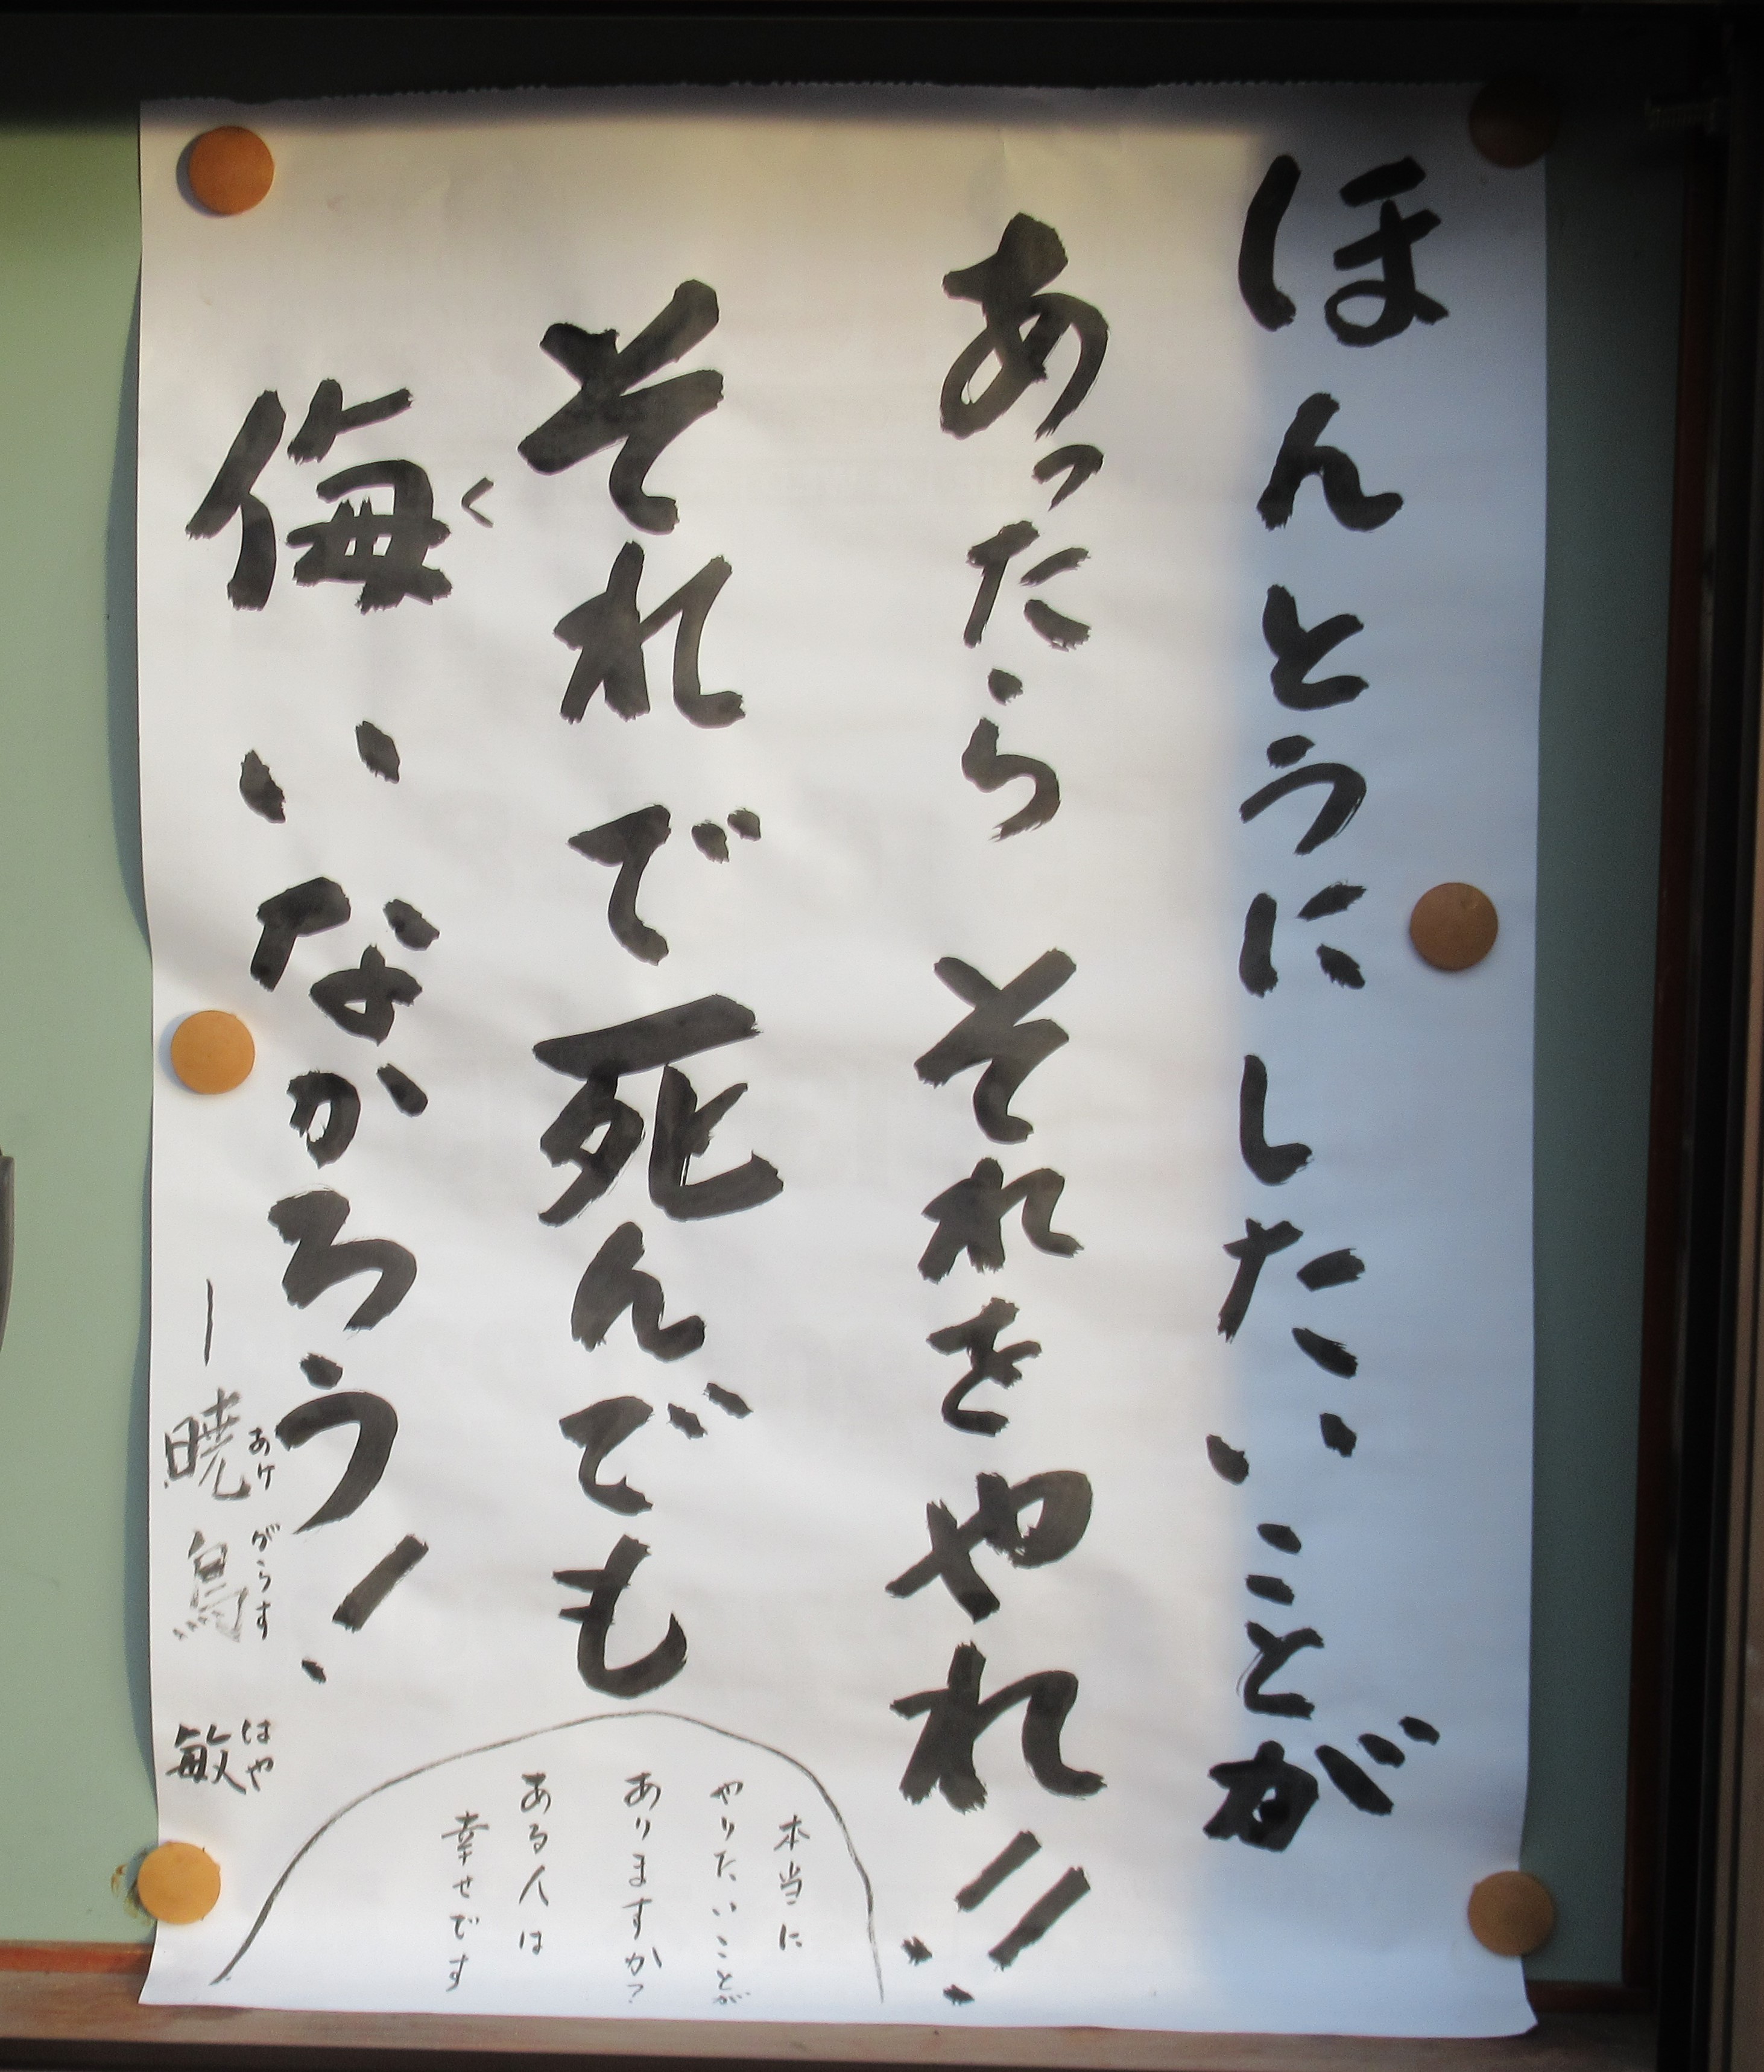 ほんとうにしたいことが
あったら それをやれ!!
それで死んでも
く
侮いなかろう!
あけ がらす はや
―暁烏 敏
本当に
やりたいことが
ありますか?
ある人は
幸せです